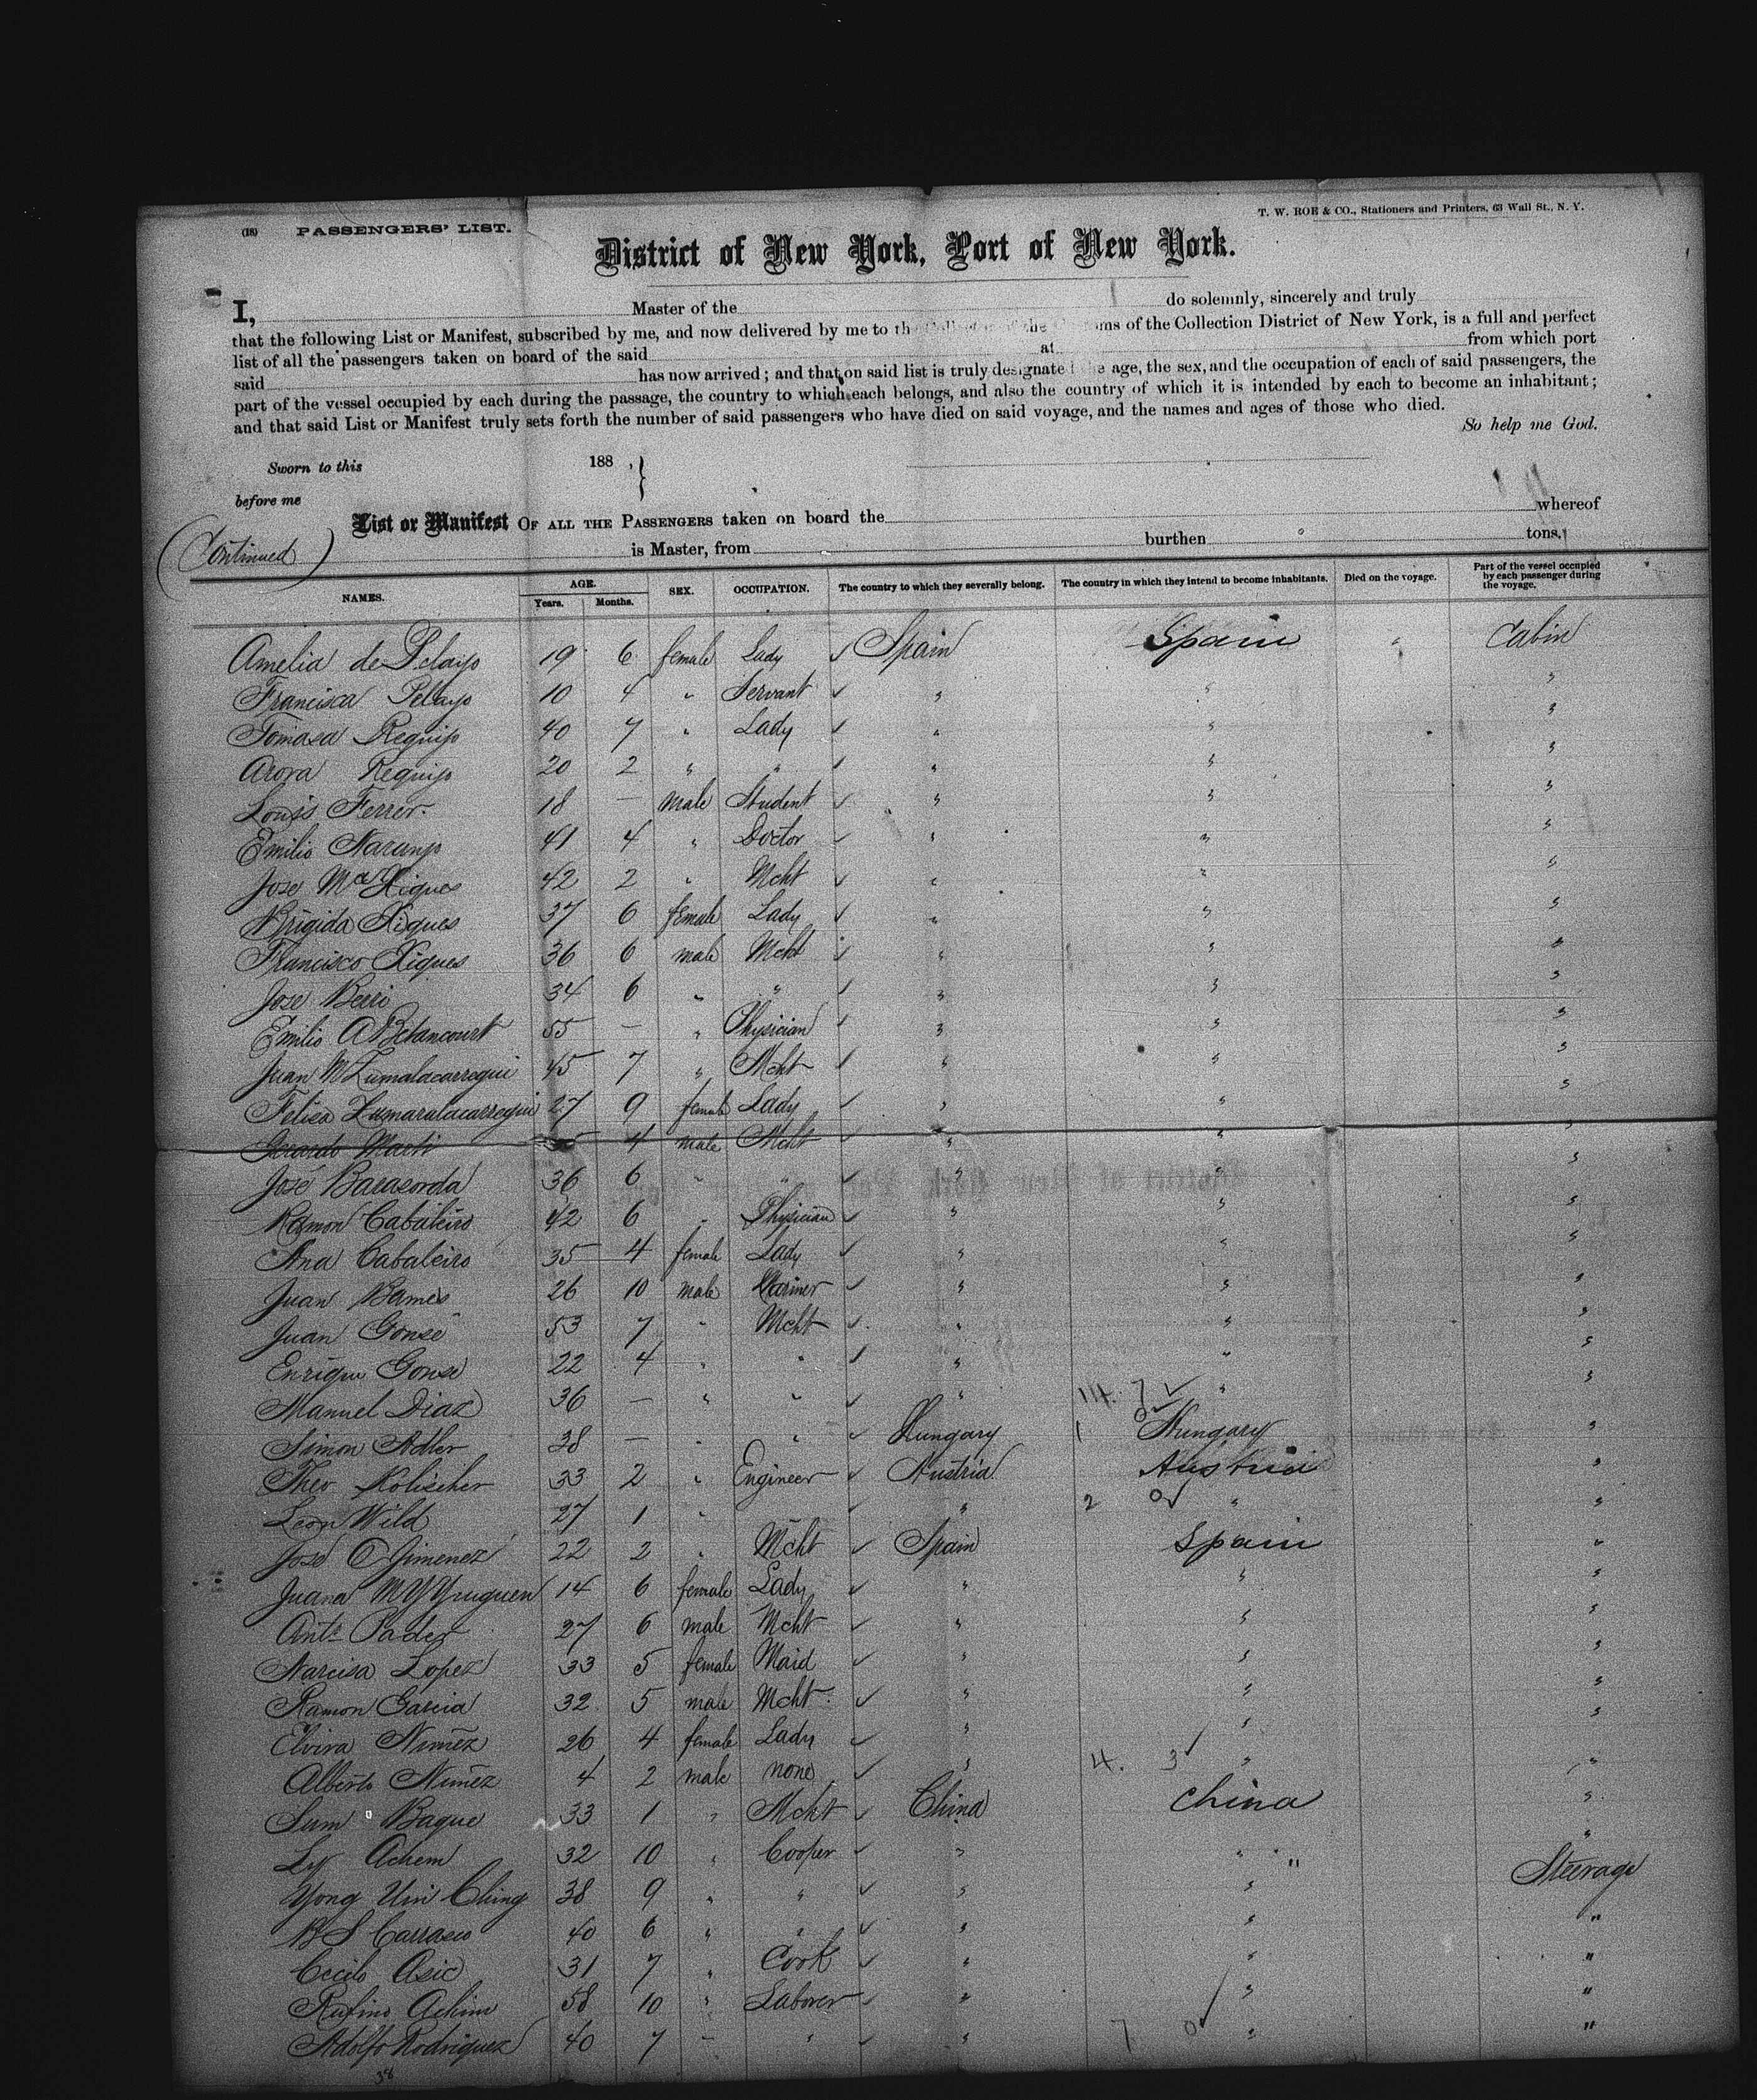 T. W. ROE & CO., Stationers and Printers, 63 Wall St., N. Y.
(18) PASSENGERS' LIST.
District of New York, Port of New York.
I, Master of the do solemnly, sincerely and truly
that the following List or Manifest, subscribed by me, and now delivered by me to the of the Collection District of New York, is a full and perfect
list of all the passengers taken on board of the said at from which port
said has now arrived; and that on said list is truly designated the age, the sex, and the occupation of each of said passengers, the
part of the vessel occupied by each during the passage, the country to which each belongs, and also the country of which it is intended by each to become an inhabitant;
and that said List or Manifest truly sets forth the number of said passengers who have died on said voyage, and the names and ages of those who died.
So help me God.
Sworn to this 188 , }
before me
List or Manifest OF ALL THE PASSENGERS taken on board the whereof
(Continued) is Master, from burthen tons.
NAMES. AGE. Years. Months. SEX. OCCUPATION. The country to which they severally belong. The country in which they intend to become inhabitants. Died on the voyage. Part of the vessel occupied by each passenger during the voyage.
Amelia de Pelayo 19 6 female Lady ✓ Spain Spain " Cabin
Francisca Pelayo 10 4 " Servant ✓ " " "
Tomasa Requijo 40 7 " Lady ✓ " " "
Arora Requijo 20 2 " " ✓ " " "
Louis Ferrer. 18 — male Student ✓ " " "
Emilio Naranjo 41 4 " Doctor ✓ " " "
Jose Ma Xiques 42 2 " Mcht ✓ " " "
Brigida Xiques 37 6 female Lady ✓ " " "
Francisco Xiques 36 6 male Mcht ✓ " " "
Jose Berri 34 6 " " ✓ " " "
Emilio A Betancourt 55 — " Physician ✓ " " "
Juan M Zumalacarregui 45 7 " Mcht ✓ " " "
Felisa Zumaralacarregui 27 9 female Lady ✓ " " "
Gerardo Marti 4 male Mcht ✓ " " "
José Barasorda 36 6 " " ✓ " " "
Ramon Cabaleiro 42 6 " Physician ✓ " " "
Ana Cabaleiro 35 4 female Lady ✓ " " "
Juan Bames 26 10 male Mariner ✓ " " "
Juan Gonse 53 7 " Mcht ✓ " " "
Enrique Gonse 22 4 " " ✓ " " "
Manuel Diaz 36 — " " ✓ " 14. 7 ✓ " "
Simon Adler 38 — " " ✓ Hungary 1 0✓ Hungary "
Theo Kolischer 33 2 " Engineer ✓ Austria Austria "
Leon Wild 27 1 " ✓ " 2 0✓ " "
Jose O Gimenez 22 2 " Mcht ✓ Spain Spain "
Juana M Y 14 6 female Lady ✓ " " "
Anto Pader 27 6 male Mcht ✓ " " "
Narcisa Lopez 33 5 female Maid ✓ " " "
Ramon Garcia 32 5 male Mcht. ✓ " " "
Elvira Nuñez 26 4 female Lady ✓ " " "
Alberto Nuñez 4 2 male none ✓ " 4. 3✓ " "
Sum Baque 33 1 " Mcht ✓ China China "
Ly Achem 32 10 " Cooper ✓ " " " "
Yong Uin Ching 38 9 " " ✓ " " Steerage
B S Carrasco 40 6 " " ✓ " " "
Cecilo Asic 31 7 " Cook ✓ " " "
Rufino Achim 58 10 " Laborer ✓ " " "
Adolfo Rodriguez 40 7 " " ✓ " 7 0✓ " "
38